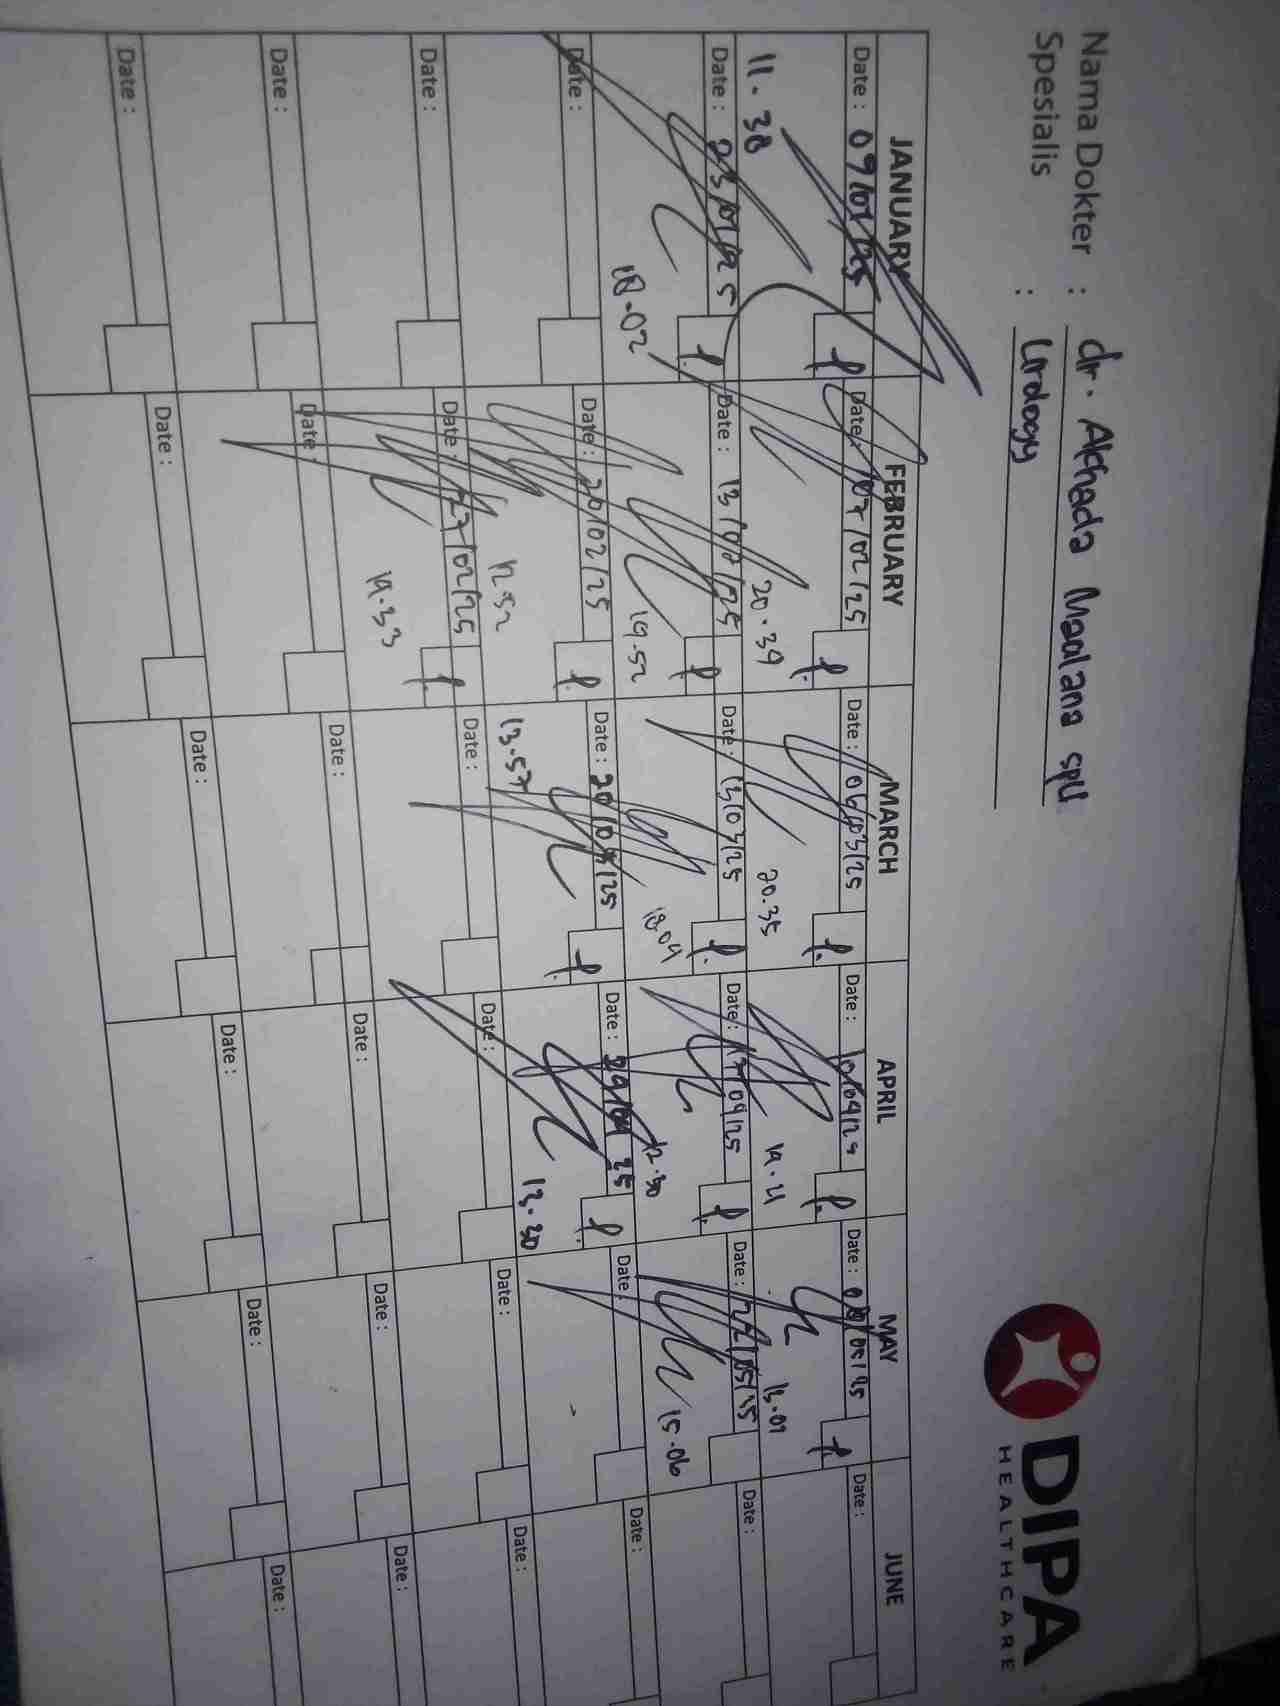 Nama Dokter : dr. Akhada Maulana SpU
Spesialis : Urology
DIPA
HEALTHCARE
JANUARY FEBRUARY MARCH APRIL MAY JUNE
Date : 09/01/25 Date : 07/02/25 Date : 06/03/25 Date : 10/04/25 Date : 08/05/25 Date :
11.38 20.39 20.35 19.21 13.01
Date : 23/01/25 Date : 13/02/25 Date : 13/03/25 Date : 17/04/25 Date : 22/05/25 Date :
18.02 19.52 18.04 12.30 15.06
Date : Date : 20/02/25 Date : 20/03/25 Date : 29/04/25 Date : Date :
12.52 13.57 13.30
Date : Date : 27/02/25 Date : Date : Date : Date :
19.33
Date : Date : Date : Date : Date : Date :
Date : Date : Date : Date : Date : Date :